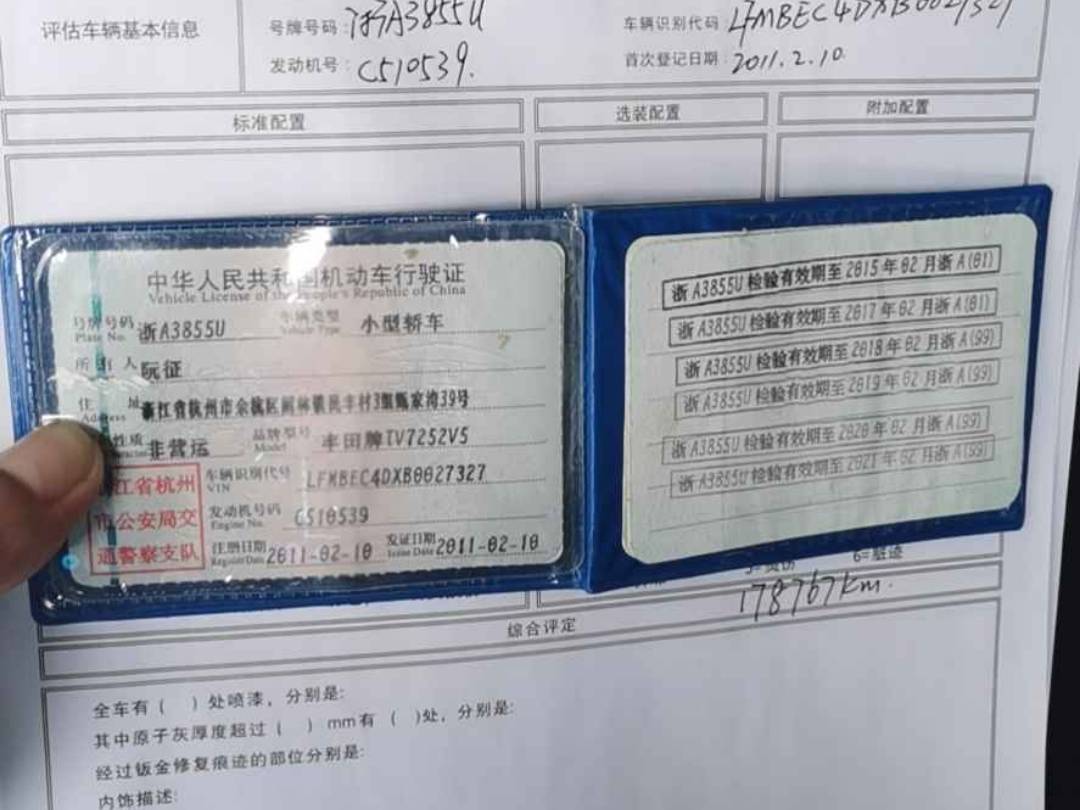 评估车辆基本信息
号牌号码: 浙A3855U
车辆识别代码: LFMBEC4DXB0027327
发动机号: C510539.
首次登记日期: 2011.2.10.
标准配置
选装配置
附加配置
中华人民共和国机动车行驶证
Vehicle License of the People's Republic of China
号牌号码 浙A3855U
Plate No.
车辆类型 小型轿车
Vehicle Type
所有人 阮征
住址
Address
非营运
品牌型号 丰田牌TV7252V5
Model
车辆识别代号 LFMBEC4DXB0027327
VIN
发动机号码 C510539
Engine No.
注册日期 2011-02-10
Register Date
发证日期 2011-02-10
Issue Date
江省杭州
市公安局交
通警察支队
浙A3855U检验有效期至2015年02月浙A(01)
浙A3855U检验有效期至2017年02月浙A(01)
浙A3855U检验有效期至2018年02月浙A(99)
浙A3855U检验有效期至2019年02月浙A(99)
浙A3855U检验有效期至2020年02月浙A(99)
浙A3855U检验有效期至2021年02月浙A(99)
6=脏迹
178767km.
综合评定
全车有( )处喷漆，分别是:
其中原子灰厚度超过( )mm有( )处，分别是:
经过钣金修复痕迹的部位分别是:
内饰描述: